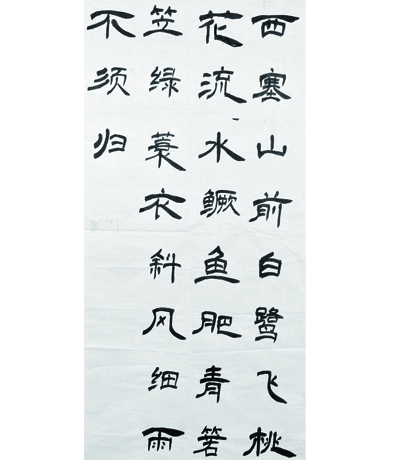 西塞山前白鹭飞桃
花流水鳜鱼肥青箬
笠绿蓑衣斜风细雨
不须归